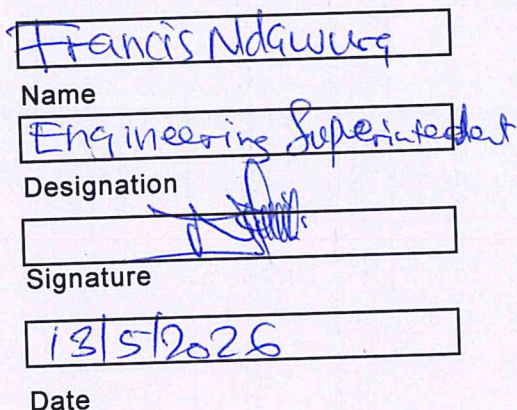 Francis Ndawura
Name
Engineering Superintendent
Designation
Signature
13/5/2026
Date